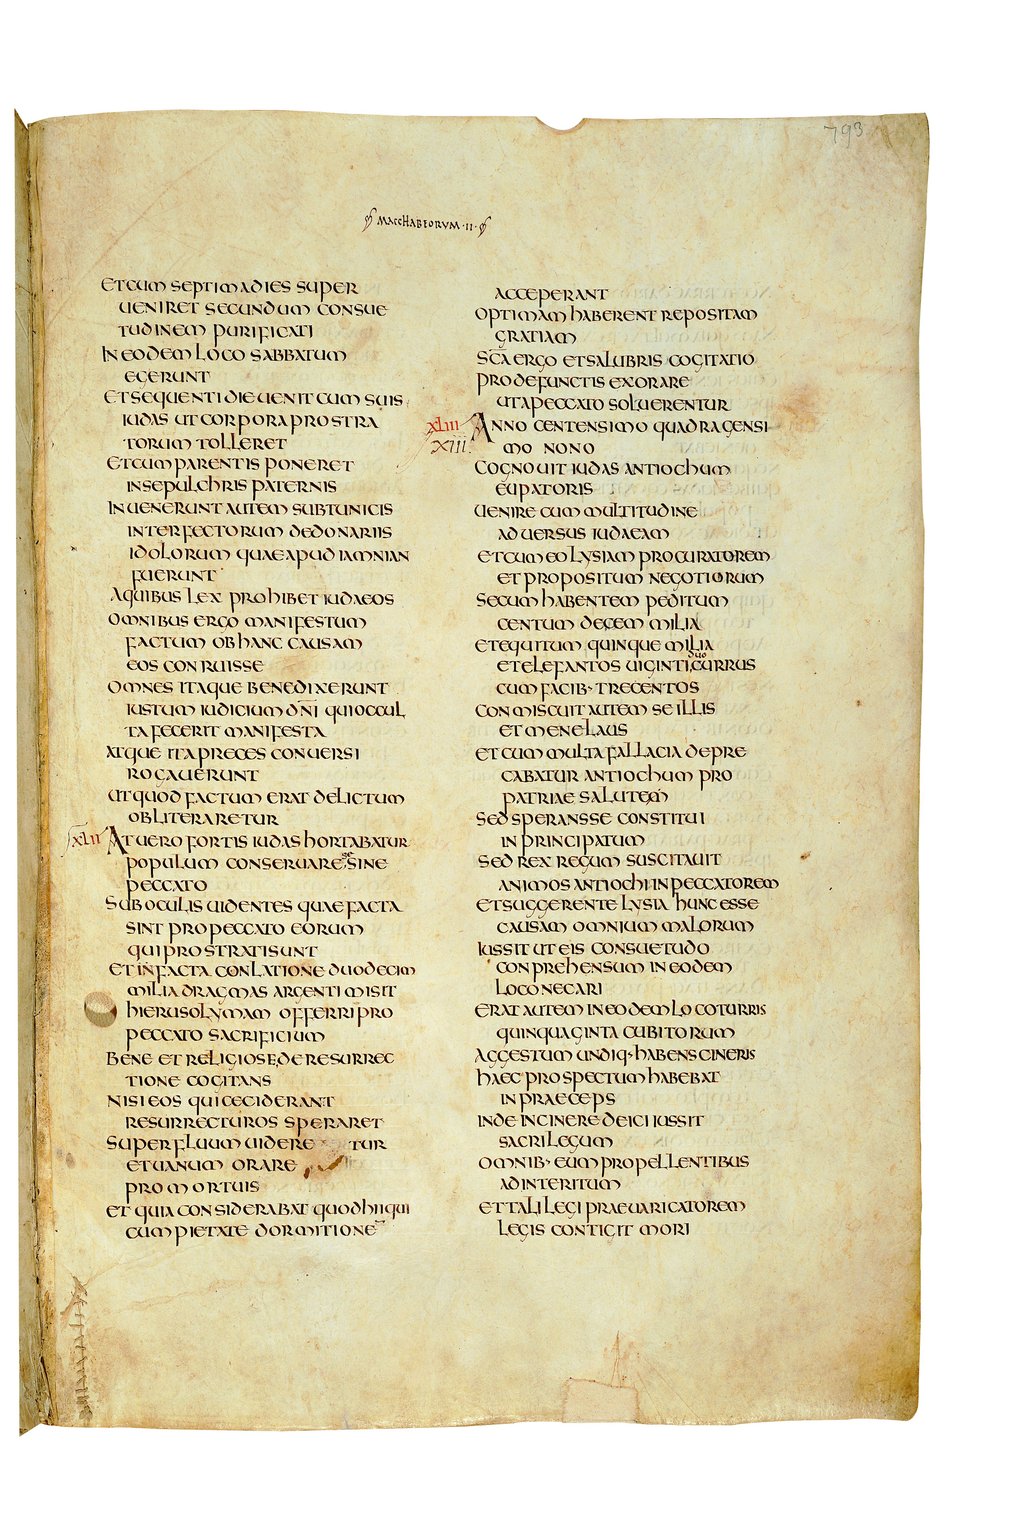 793
MACCHABEORUM · II ·
ET CUM SEPTIMA DIES SUPER
UENIRET SECUNDUM CONSUE
TUDINEM PURIFICATI
IN EODEM LOCO SABBATUM
EGERUNT
ET SEQUENTI DIE UENIT CUM SUIS
IUDAS UT CORPORA PROSTRA
TORUM TOLLERET
ET CUM PARENTIS PONERET
IN SEPULCHRIS PATERNIS
INUENERUNT AUTEM SUB TUNICIS
INTERFECTORUM DE DONARIIS
IDOLORUM QUAE APUD IAMNIAN
FUERUNT
A QUIBUS LEX PROHIBET IUDAEOS
OMNIBUS ERGO MANIFESTUM
FACTUM OB HANC CAUSAM
EOS CONRUISSE
OMNES ITAQUE BENEDIXERUNT
IUSTUM IUDICIUM DNI QUI OCCUL
TA FECERIT MANIFESTA
ATQUE ITA PRECES CONUERSI
ROGAUERUNT
UT QUOD FACTUM ERAT DELICTUM
OBLITERARETUR
XLII AT UERO FORTIS IUDAS HORTABATUR
POPULUM CONSERUARE SE SINE
PECCATO
SUB OCULIS UIDENTES QUAE FACTA
SINT PRO PECCATO EORUM
QUI PROSTRATI SUNT
ET IN FACTA CONLATIONE DUODECIM
MILIA DRAGMAS ARGENTI MISIT
HIERUSOLYMAM OFFERRI PRO
PECCATO SACRIFICIUM
BENE ET RELIGIOSE DE RESURREC
TIONE COGITANS
NISI EOS QUI CECIDERANT
RESURRECTUROS SPERARET
SUPERFLUUM UIDERETUR
ET UANUM ORARE
PRO MORTUIS
ET QUIA CONSIDERABAT QUOD HII QUI
CUM PIETATE DORMITIONE
ACCEPERANT
OPTIMAM HABERENT REPOSITAM
GRATIAM
SCA ERGO ET SALUBRIS COGITATIO
PRO DEFUNCTIS EXORARE
UT A PECCATO SOLUERENTUR
XLIII ANNO CENTENSIMO QUADRAGENSI
XIII. MO NONO
COGNOUIT IUDAS ANTIOCHUM
EUPATORIS
UENIRE CUM MULTITUDINE
ADUERSUS IUDAEAM
ET CUM EO LYSIAM PROCURATOREM
ET PROPOSITUM NEGOTIORUM
SECUM HABENTEM PEDITUM
CENTUM DECEM MILIA
ET EQUITUM QUINQUE MILIA
ET ELEFANTOS UIGINTI DUO CURRUS
CUM FACIB· TRECENTOS
CONMISCUIT AUTEM SE ILLIS
ET MENELAUS
ET CUM MULTA FALLACIA DEPRE
CABATUR ANTIOCHUM PRO
PATRIAE SALUTEM
SED SPERANSSE CONSTITUI
IN PRINCIPATUM
SED REX REGUM SUSCITAUIT
ANIMOS ANTIOCHI IN PECCATOREM
ET SUGGERENTE LYSIA HUNC ESSE
CAUSAM OMNIUM MALORUM
IUSSIT UT EIS CONSUETUDO
CONPREHENSUM IN EODEM
LOCO NECARI
ERAT AUTEM IN EODEM LOCO TURRIS
QUINQUAGINTA CUBITORUM
AGGESTUM UNDIQ· HABENS CINERIS
HAEC PROSPECTUM HABEBAT
IN PRAECEPS
INDE IN CINERE DEICI IUSSIT
SACRILEGUM
OMNIB· EUM PROPELLENTIBUS
AD INTERITUM
ET TALI LEGI PRAEUARICATOREM
LEGIS CONTIGIT MORI